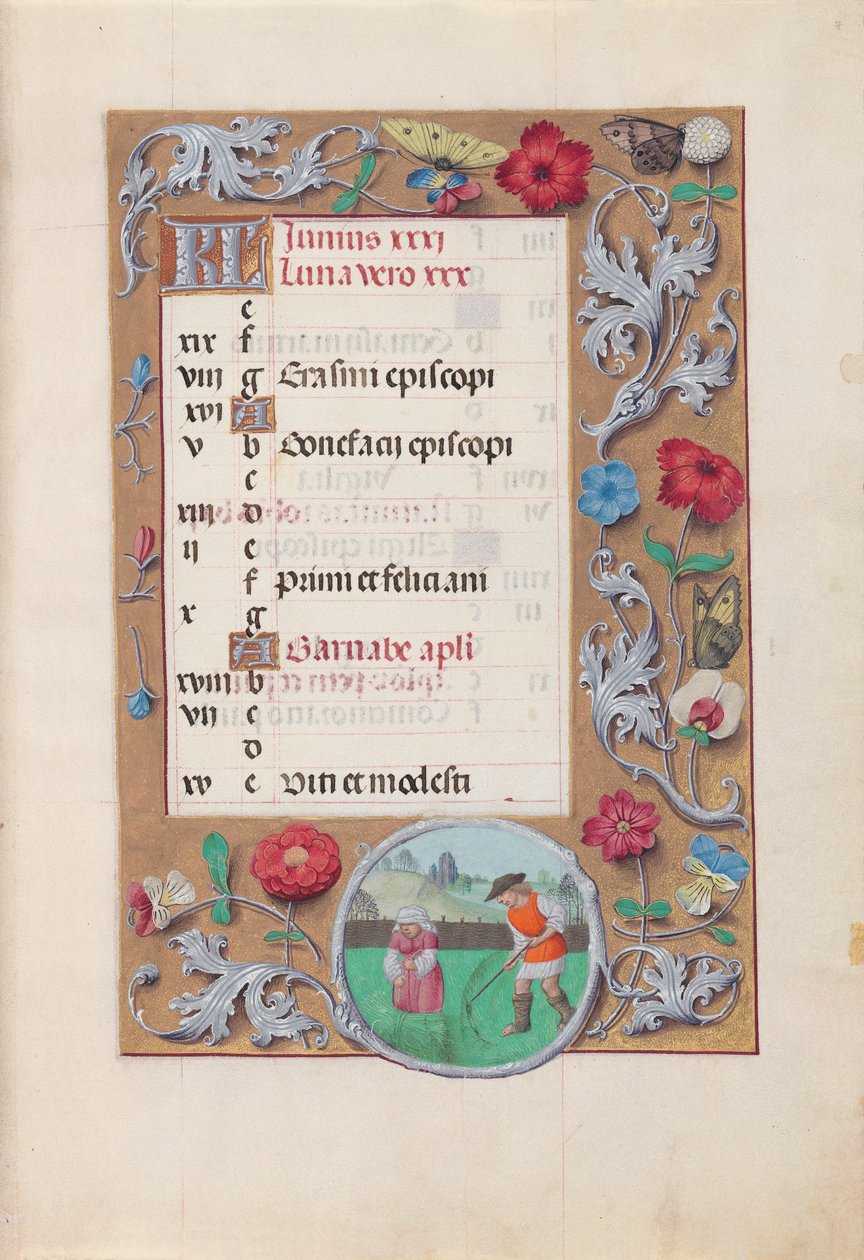 KL Junius xxxj
Luna vero xxx
e
xix f
viij g Erasmi episcopi
xvj A
v b Bonefacij episcopi
c
xiij d
ij e
f primi et feliciani
x g
A Barnabe apli
xviij b
vij c
d
xv e Viti et modesti